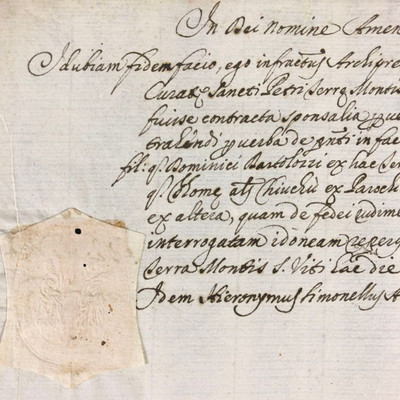 In Dei nomine Amen
Indubiam fidem facio, ego infractus Archipre
Curatq Sancti Petri Serrę Montis
fuisse contracta sponsalia
trahendi p verba de pnti in fac
fil: q. Dominici Bartolozzi ex hac Ser
q. Thomę Chiuchii ex Paroch
ex altera, quam de fidei rudime
interrogatam idoneam reperij
Serra Montis S. Viti hac die
Idem Hieronymus Simonellus A